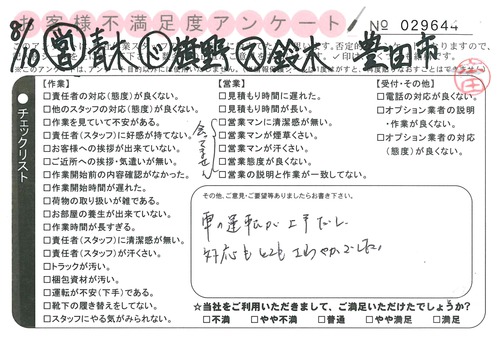 お客様不満足度アンケート
№ 029644
8/10 営 青木 ド 旗野 ア 鈴木 豊田市
チェックリスト
【作業】
□責任者の対応(態度)が良くない。
□他のスタッフの対応(態度)が良くない。
□作業を見ていて不安がある。
□責任者(スタッフ)に好感が持てない。
□お客様への挨拶が出来ていない。
□ご近所への挨拶・気遣いが無い。
□作業開始前の内容確認がなかった。
□作業開始時間が遅れた。
□荷物の取り扱いが雑である。
□お部屋の養生が出来ていない。
□作業時間が長すぎる。
□責任者(スタッフ)に清潔感が無い。
□責任者(スタッフ)が汗くさい。
□トラックが汚い。
□梱包資材が汚い。
□運転が不安(下手)である。
□靴下の履き替えをしてない。
□スタッフにやる気がみられない。
【営業】
□見積もり時間が長い。
□見積もり時間に遅れた。
□営業マンに清潔感が無い。
□営業マンが煙草くさい。
□営業マンが汗くさい。
□営業態度が良くない。
□営業の説明と作業が一致してない。
会ってません
【受付・その他】
□電話の対応が良くない。
□オプション業者の説明
・作業が良くない。
□オプション業者の対応
(態度)が良くない。
その他、ご意見・ご要望等ありましたらお書き下さい。
車の運転が上手だし、
対応もとてもさわやかでした。
☆当社をご利用いただきまして、ご満足いただけたでしょうか?
□不満 □やや不満 □普通 □やや満足 □満足